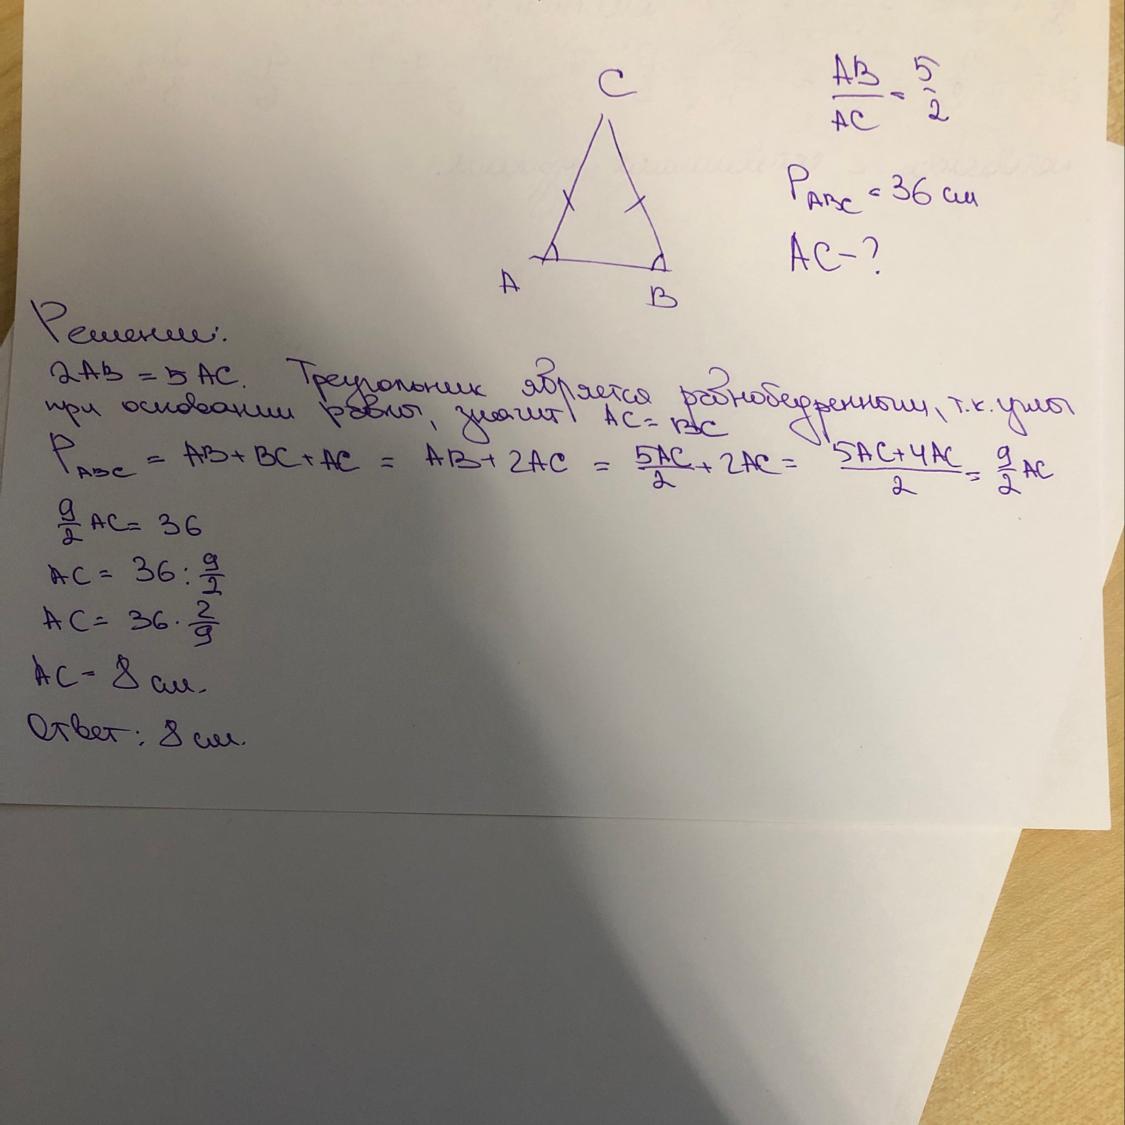 C
AB/AC = 5/2
P_ABC = 36 см
AC - ?
A
B
Решение:
2AB = 5AC. Треугольник является равнобедренным, т.к. углы
при основании равны, значит AC = BC
P_ABC = AB + BC + AC = AB + 2AC = 5AC/2 + 2AC = (5AC + 4AC)/2 = 9/2 AC
9/2 AC = 36
AC = 36 : 9/2
AC = 36 · 2/9
AC = 8 см.
Ответ: 8 см.